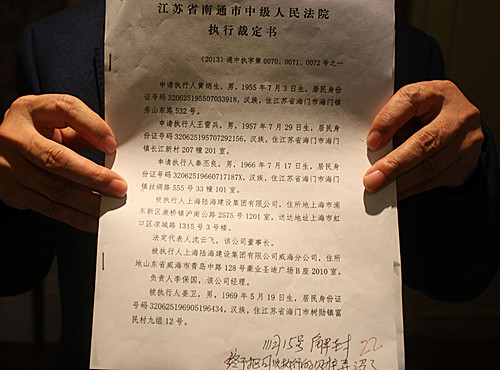 江苏省南通市中级人民法院
执行裁定书
(2013)通中执字第0070、0071、0072号之一
申请执行人黄炳生,男,1955年7月3日生,居民身份
证号码320625195507033918,汉族,住江苏省海门市海门镇
秀山东路532号。
申请执行人王雷兵,男,1957年7月29日生,居民身
份证号码320625195707292156,汉族,住江苏省海门市海门
镇长江新村207幢201室。
申请执行人秦丕良,男,1966年7月17日生,居民身
份证号码32062519660717187X,汉族,住江苏省海门市海门
镇丝绸路555号33幢101室。
被执行人上海陆海建设集团有限公司,住所地上海市浦
东新区康桥镇沪南公路2575号1201室,送达地址上海市虹
口区凉城路1315号3号楼。
法定代表人沈云飞,该公司董事长。
被执行人上海陆海建设集团有限公司威海分公司,住所
地山东省威海市青岛中路128号豪业圣迪广场B座2010室。
负责人李保国,该公司经理。
被执行人姜卫,男,1969年5月19日生,居民身份证
号码320625196905196434,汉族,住江苏省海门市树勋镇富
民村九组12号。
15号解封 22